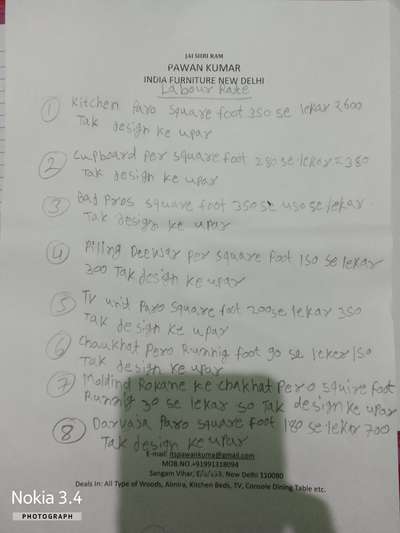 JAI SHRI RAM
PAWAN KUMAR
INDIA FURNITURE NEW DELHI
Labour Rate
① Kitchen Paro Square foot 350 se lekar 2600
Tak design ke upar
② Cupboard Per Square foot 280 se lekar = 380
Tak design ke upar
③ Bad Pros Square foot 350 se 450 se lekar
Tak design ke upar
④ Piling Deewar per square foot 150 se lekar
300 Tak design ke upar
⑤ TV unid Paro Square foot 200 se lekar 350
Tak design ke upar
⑥ Chaukhat Pero Runnig foot 90 se leker 150
Tak design ke upar
⑦ Molding Rokane ke chakhat Pero squire foot
Running 30 se lekar 50 Tak design ke upar
⑧ Darvaja Paro square foot 180 se leker 700
Tak design ke upar
E-mail: itspawankuma@gmail.com
MOB.NO.+91991318094
Sangam Vihar, New Delhi 110080
Deals In: All Type of Woods, Almira, Kitchen Beds, TV, Console Dining Table etc.
Nokia 3.4
PHOTOGRAPH